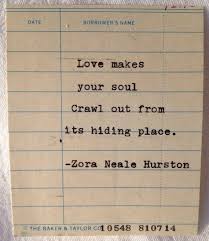 DATE BORROWER'S NAME
Love makes
your soul
Crawl out from
its hiding place.
-Zora Neale Hurston
© THE BAKER & TAYLOR CO. 10548 810714